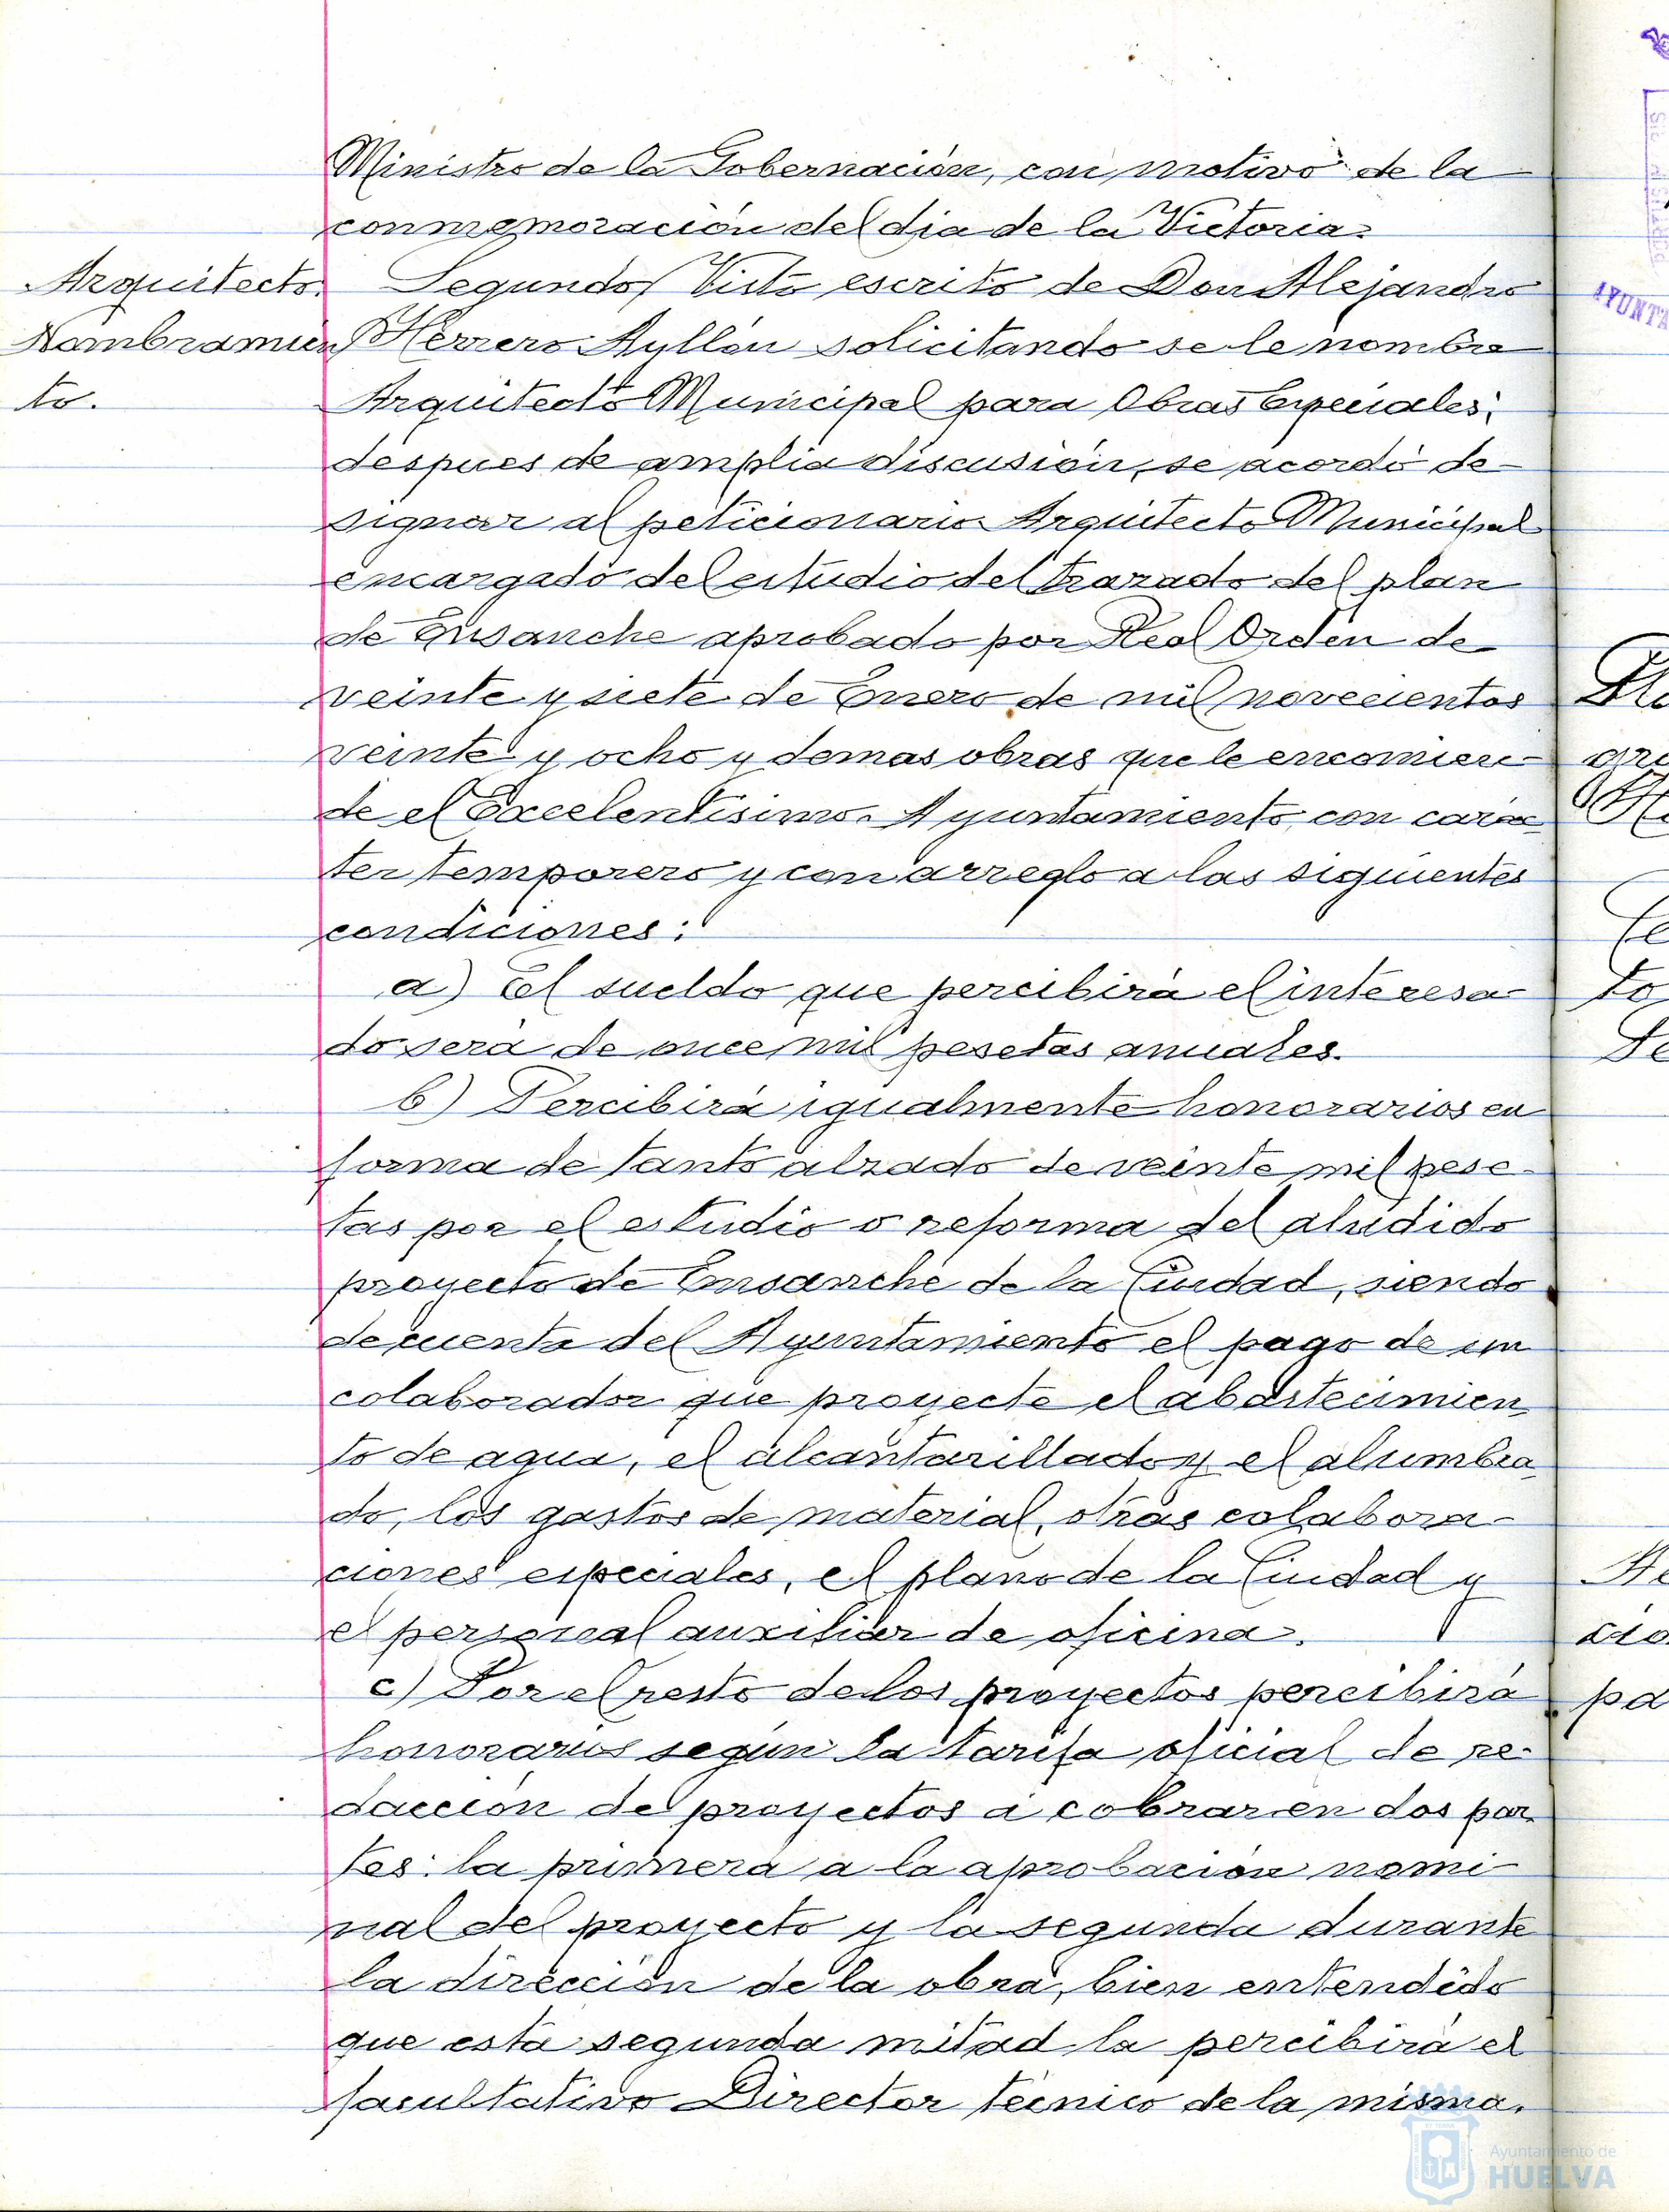 Ministro de la Gobernación, con motivo de la
conmemoración del dia de la Victoria.
Arquitecto.
Nombramien
to.
Segundo/ Visto escrito de Don Alejandro
Herrero Ayllón solicitando se le nombre
Arquitecto Municipal para Obras Especiales;
despues de amplia discusión, se acordó de-
signar al peticionario Arquitecto Municipal
encargado del estudio del trazado del plan
de Ensanche aprobado por Real Orden de
veinte y siete de Enero de mil novecientos
veinte y ocho y demas obras que le encomien-
de el Excelentisimo Ayuntamiento, con carac
ter temporero y con arreglo a las siguientes
condiciones:
a) El sueldo que percibirá el interesa-
do será de once mil pesetas anuales.
b) Percibirá igualmente honorarios en
forma de tanto alzado de veinte mil pese-
tas por el estudio o reforma del aludido
proyecto de Ensanche de la Ciudad, siendo
de cuenta del Ayuntamiento el pago de un
colaborador que proyecte el abastecimien
to de agua, el alcantarillado y el alumbra
do, los gastos de material, otras colabora-
ciones especiales, el plano de la Ciudad y
el personal auxiliar de oficina.
c) Por el resto de los proyectos percibirá
honorarios según la tarifa oficial de re-
dacción de proyectos a cobrar en dos par
tes: la primera a la aprobación nomi-
nal del proyecto y la segunda durante
la dirección de la obra, bien entendido
que esta segunda mitad la percibirá el
facultativo Director técnico de la misma.
AYUNTA
to
pa
Ayuntamiento de
HUELVA